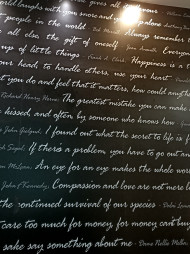 world laughs with you snore and you sleep alone
people in the world. Always remember t
all else, the gift of oneself
ay of little things. Happiness is a t
our head, to handle others, use your heart.
t you do and feel that it matters, how could anyth
Richard Henry Horne. The greatest mistake you can make
kissed, and often by someone who knows how
John Gielgud. I found out what the secret to life is f
If there's a problem, you have to go out an
An eye for an eye makes the whole wor
John F Kennedy. Compassion and love are not mere l
the continued survival of our species. Dalai Lama
care too much for money, for money can't buy
sake say something about me. Dame Nellie Melba